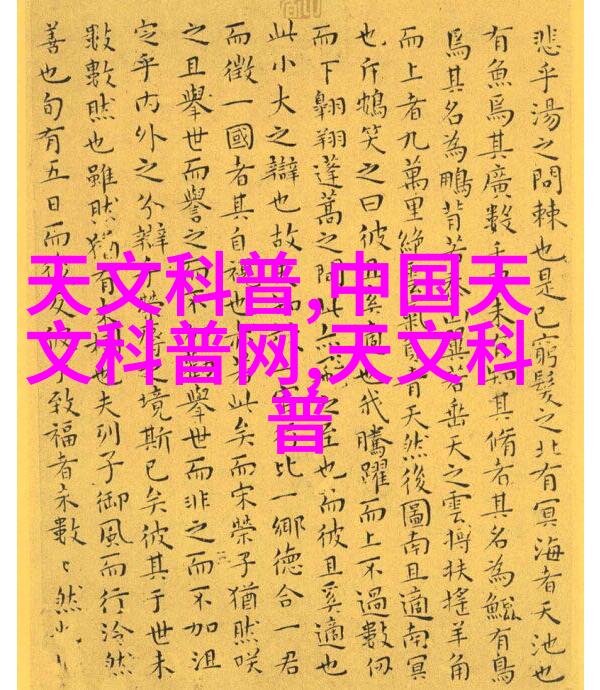 天文科普,中国天
文科普网,天文科
普
悲乎湯之問棘也是已窮髮之北有冥海者天池也
有魚焉其廣數千未有知其脩者其名為鯤有鳥
焉其名為鵬背若泰山翼若垂天之雲摶扶搖羊角
而上者九萬里絕雲氣負青天然後圖南且適南冥
也斥鴳笑之曰彼且奚適也我騰躍而上不過數仞
而下翱翔蓬蒿之間此之至也而彼且奚適也
此小大之辯也故夫行比一鄉德合一君
而徵一國者其自視也亦若此矣而宋榮子猶然咲
之且舉世而譽之而不勸舉世而非之而不加沮
定乎內外之分辯乎榮辱之境斯已矣彼其于世未
數數然也雖然猶有未也夫列子御風而行泠然
善也旬有五日而後反彼于致福者未數〻然